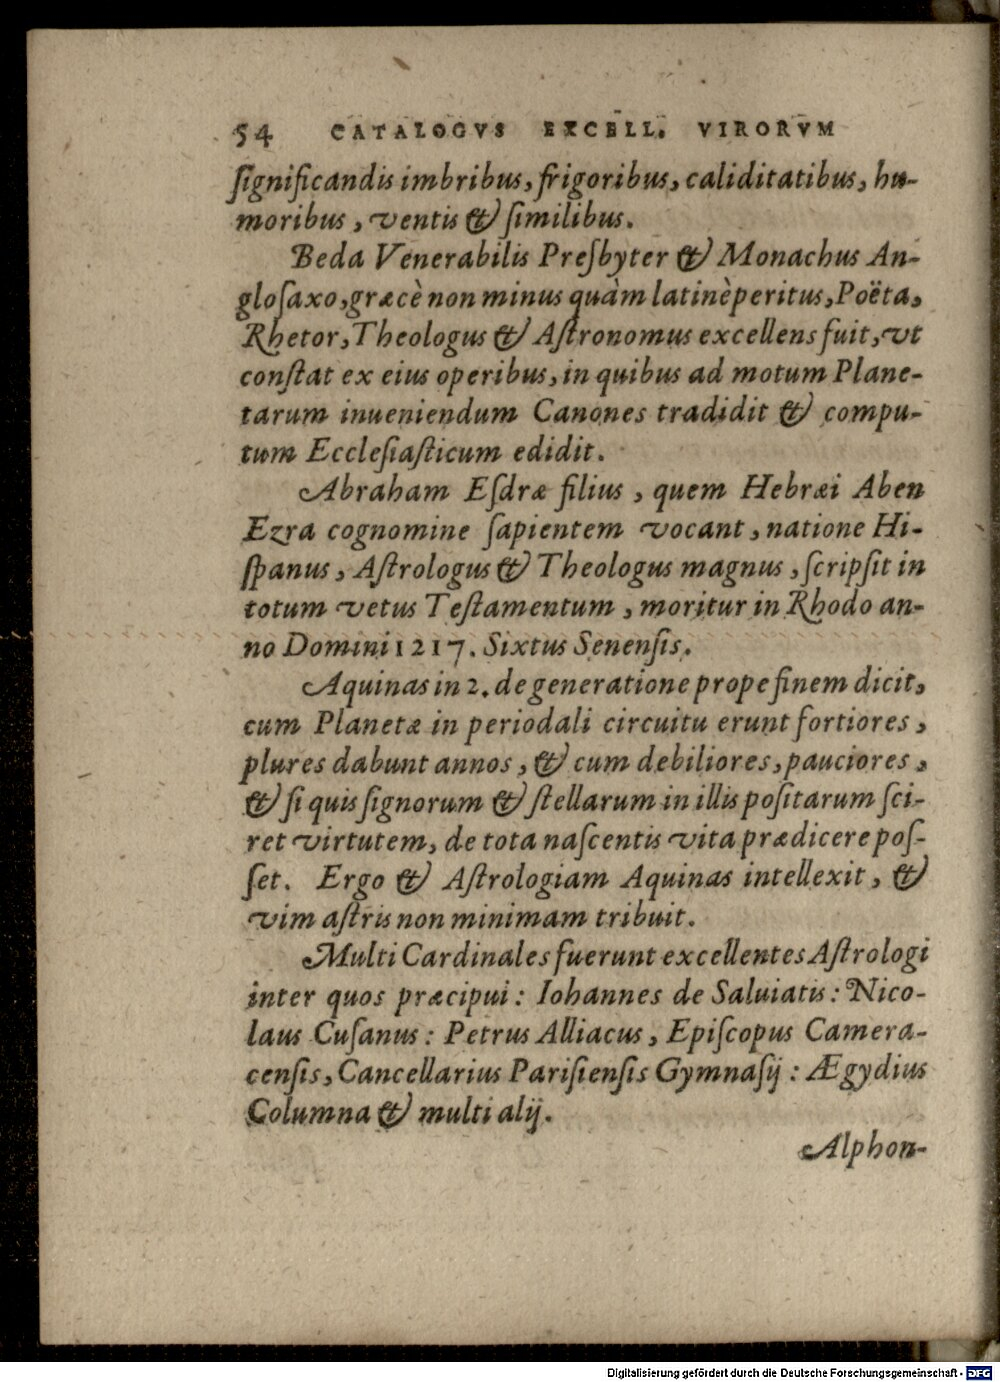 54 CATALOGVS EXCELL. VIRORVM
ſignificandis imbribus, frigoribus, caliditatibus, hu-
moribus, ventis & ſimilibus.
Beda Venerabilis Preſbyter & Monachus An-
gloſaxo, græcè non minus quàm latinè peritus, Poëta,
Rhetor, Theologus & Aſtronomus excellens fuit, vt
conſtat ex eius operibus, in quibus ad motum Plane-
tarum inueniendum Canones tradidit & compu-
tum Eccleſiaſticum edidit.
Abraham Eſdræ filius, quem Hebræi Aben
Ezra cognomine ſapientem vocant, natione Hi-
ſpanus, Aſtrologus & Theologus magnus, ſcripſit in
totum vetus Teſtamentum, moritur in Rhodo an-
no Domini 1217. Sixtus Senenſis.
Aquinas in 2. de generatione prope finem dicit,
cum Planetæ in periodali circuitu erunt fortiores,
plures dabunt annos, & cum debiliores, pauciores,
& ſi quis ſignorum & ſtellarum in illis poſitarum ſci-
ret virtutem, de tota naſcentis vita prædicere poſ-
ſet. Ergo & Aſtrologiam Aquinas intellexit, &
vim aſtris non minimam tribuit.
Multi Cardinales fuerunt excellentes Aſtrologi
inter quos præcipui: Iohannes de Saluiatis: Nico-
laus Cuſanus: Petrus Alliacus, Epiſcopus Camera-
cenſis, Cancellarius Pariſienſis Gymnaſij: Ægydius
Columna & multi alij.
Alphon-
Digitalisierung gefördert durch die Deutsche Forschungsgemeinschaft - DFG